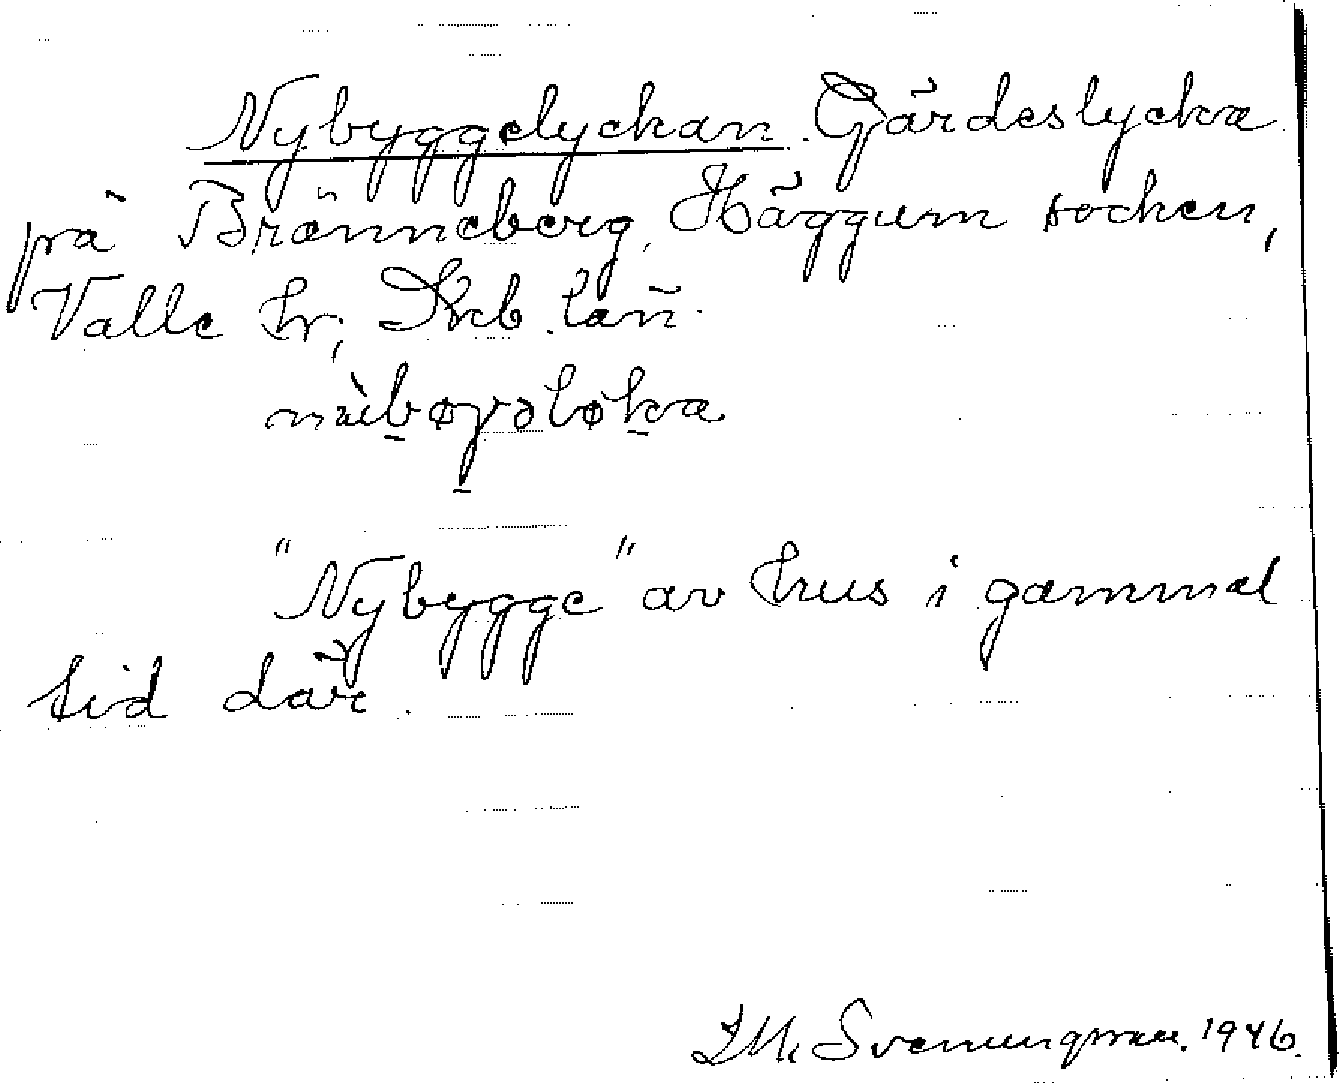 Nybyggelyckan. Gärdeslycka
på Bränneberg, Häggum socken,
Valle hr, Skb. län.
"Nybygge" av hus i gammal
tid där.
Svenungsson. 1946.